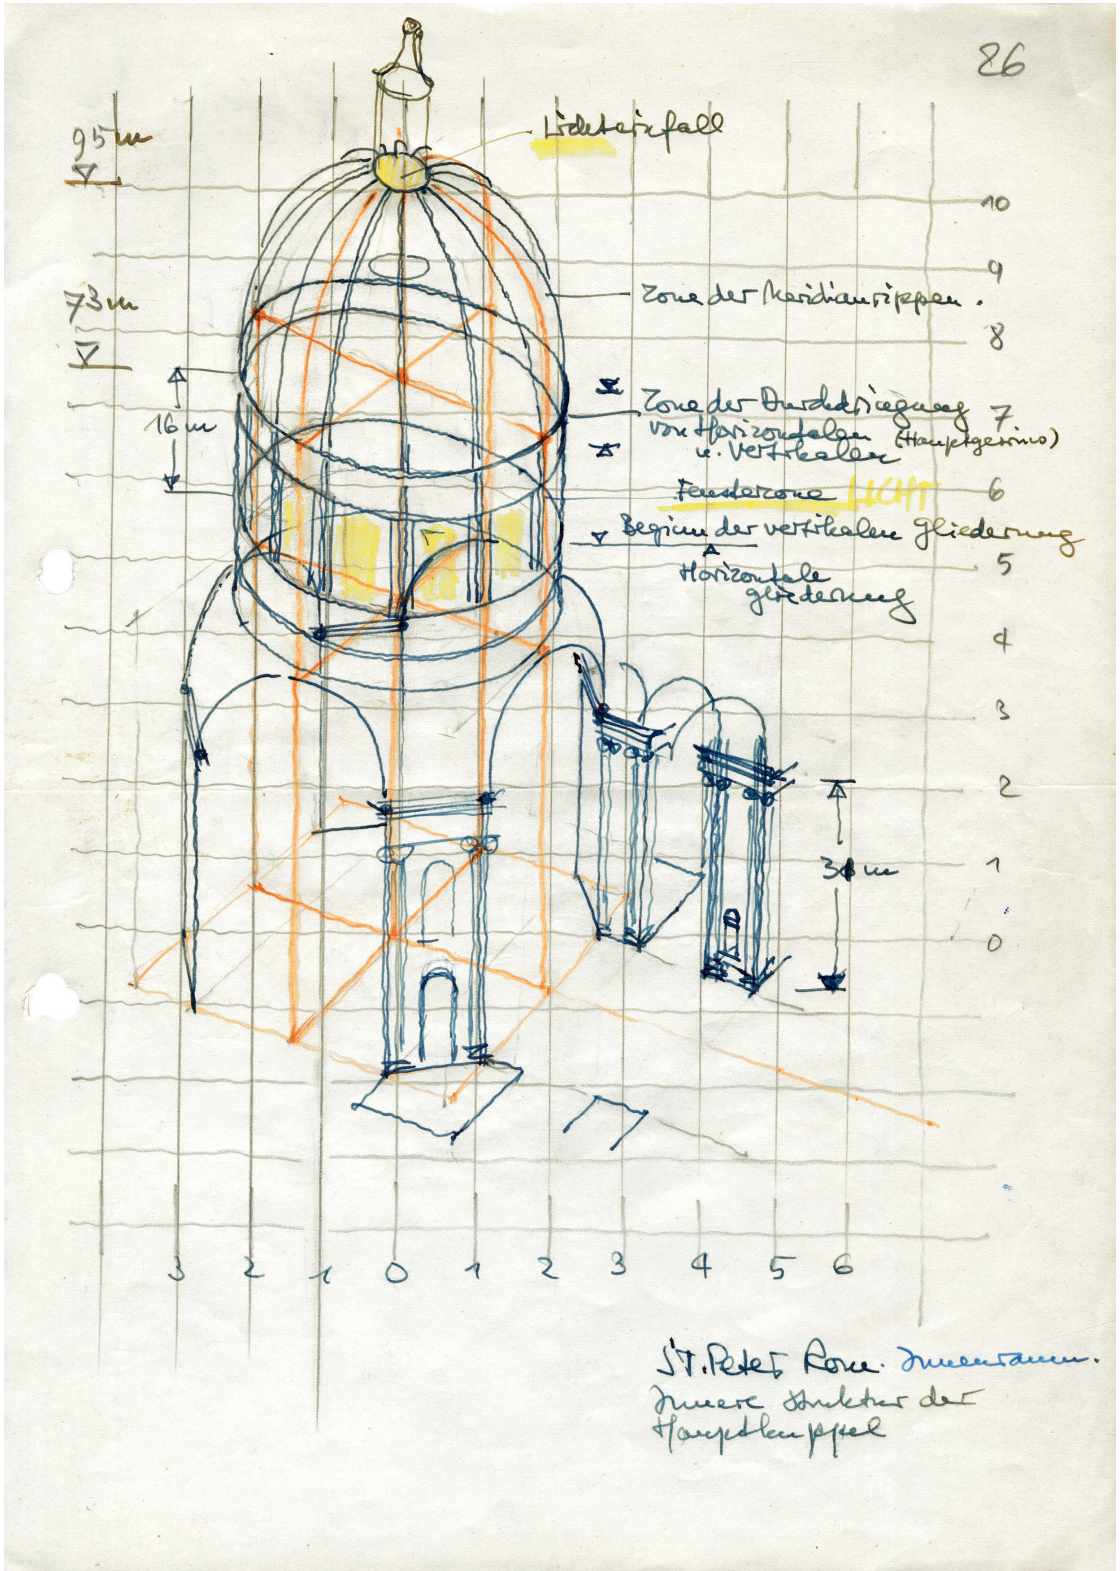 26
95m
Lichteinfall
10
9
73m
Zone der Meridianrippen.
8
Zone der Durchdringung
7
von Horizontalen (Hauptgesims)
u. Vertikalen
16m
Fensterzone LICHT
6
Beginn der vertikalen Gliederung
5
Horizontale
gliederung
4
3
2
1
m
0
3 2 1 0 1 2 3 4 5 6
ST. Peter Rom. Innenraum.
Innere Struktur der
Hauptkuppel